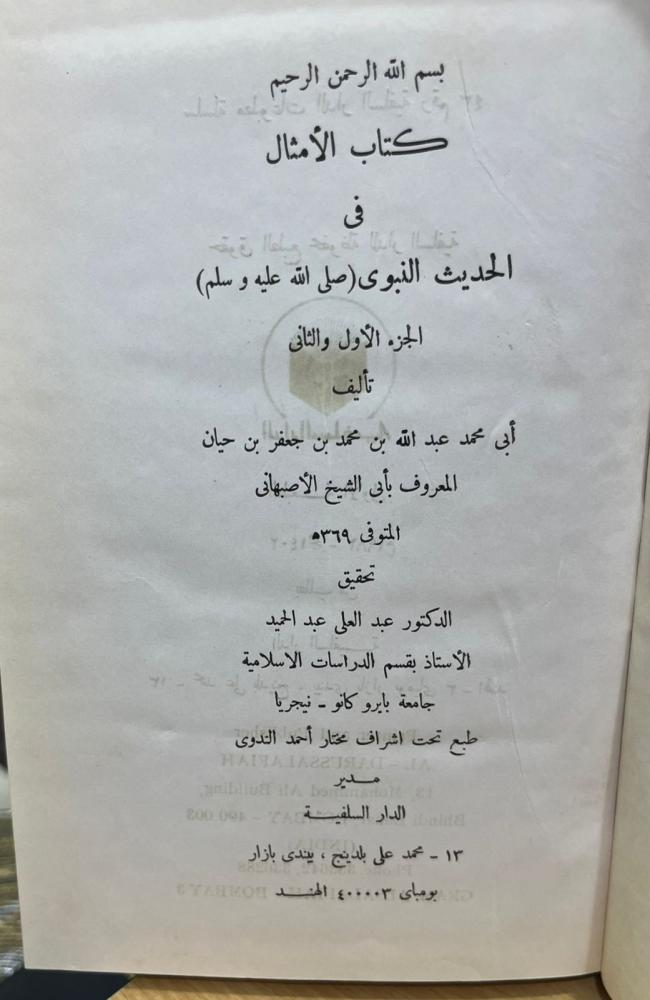 بسم الله الرحمن الرحيم
كتاب الأمثال
فى
الحديث النبوى (صلى الله عليه و سلم)
الجزء الأول والثانى
تأليف
أبى محمد عبد الله بن محمد بن جعفر بن حيان
المعروف بأبى الشيخ الأصبهانى
المتوفى ٣٦٩ه
تحقيق
الدكتور عبد العلى عبد الحميد
الأستاذ بقسم الدراسات الاسلامية
جامعة بايرو كانو - نيجريا
طبع تحت اشراف مختار أحمد الندوى
مدير
الدار السلفية
١٣ - محمد على بلدينج ، بيندى بازار
بومباى ٤٠٠٠٠٣ الهند